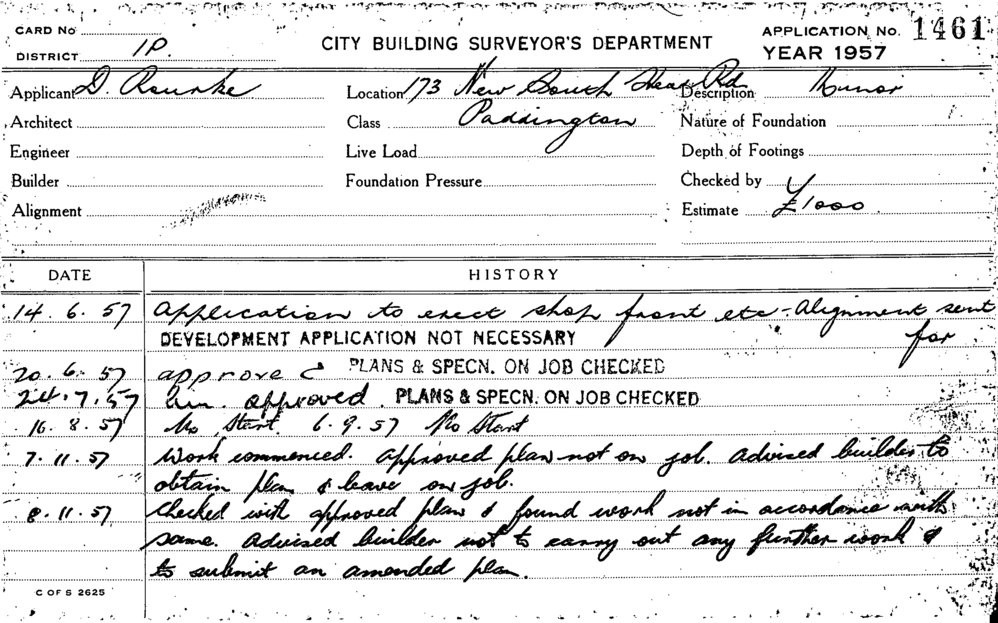 CARD No
DISTRICT 1P.
CITY BUILDING SURVEYOR'S DEPARTMENT
APPLICATION No. 1461
YEAR 1957
Applicant D. Rourke
Location 173 New South Head Rd
Description Minor
Architect
Class Paddington
Nature of Foundation
Engineer
Live Load
Depth of Footings
Builder
Foundation Pressure
Checked by
Alignment
Estimate £1000
DATE HISTORY
14. 6. 57 Application to erect shop front etc - Alignment sent
DEVELOPMENT APPLICATION NOT NECESSARY for.
20. 6. 57 approve PLANS & SPECN. ON JOB CHECKED
24. 7. 57 approved. PLANS & SPECN. ON JOB CHECKED
16. 8. 57 No Start 6.9.57 No Start
7. 11. 57 Work commenced. Approved plan not on job. Advised builder to
obtain plan & leave on job.
8. 11. 57 Checked with approved plan & found work not in accordance with
same. Advised builder not to carry out any further work &
to submit an amended plan.
C OF S 2625